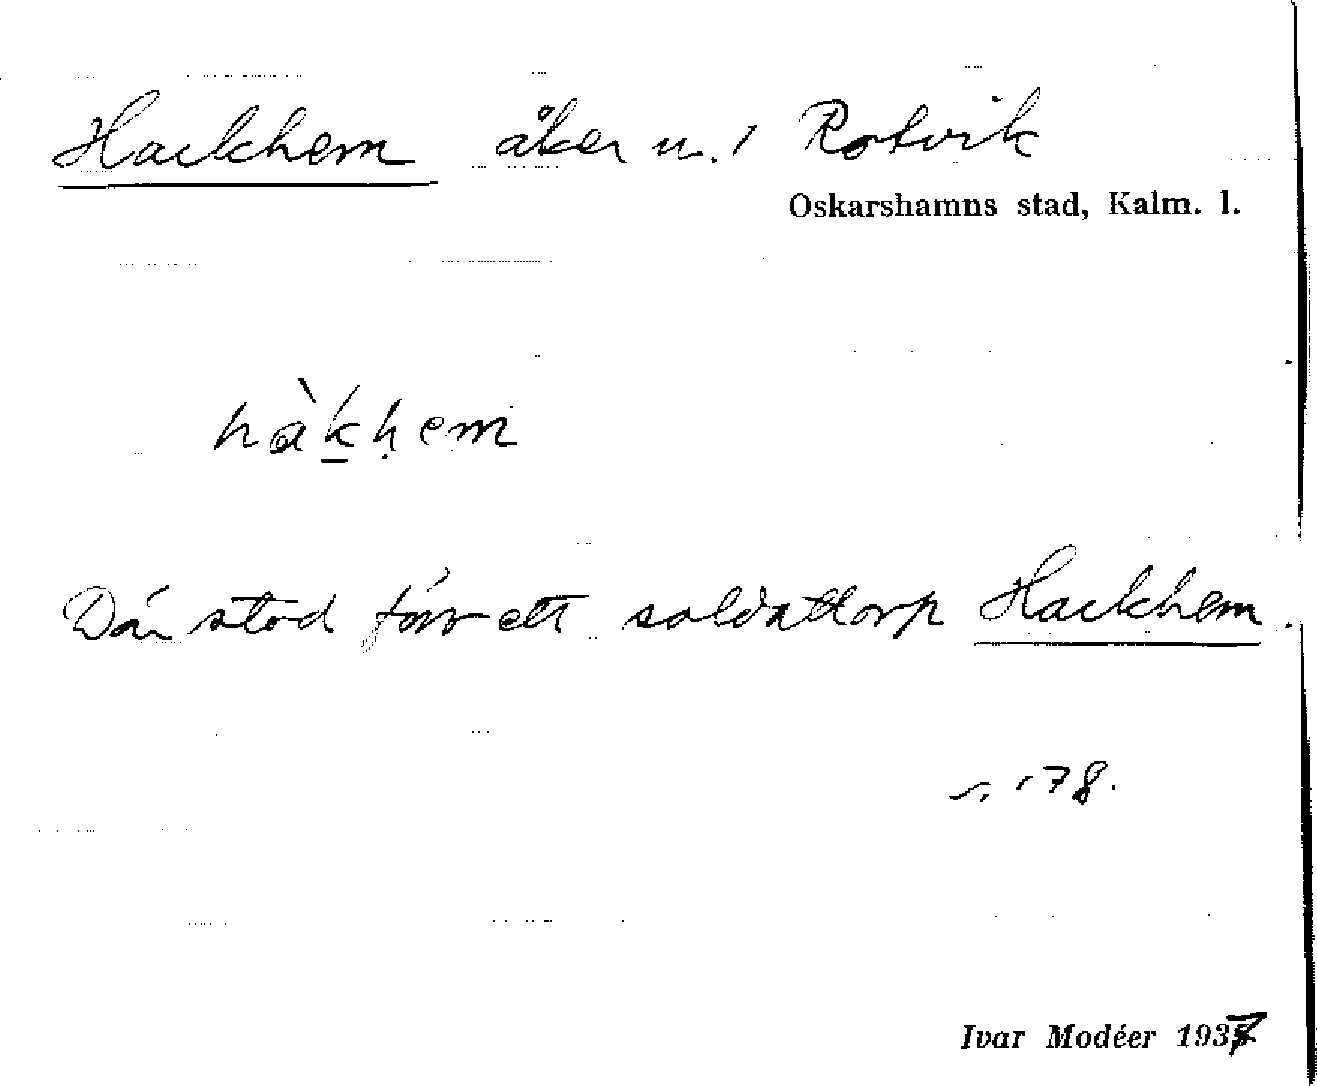 Hackhem åker u. 1 Rotvik
Oskarshamns stad, Kalm. l.
hàkḥem
Där stod förr ett soldattorp Hackhem.
s. 178.
Ivar Modéer 1937